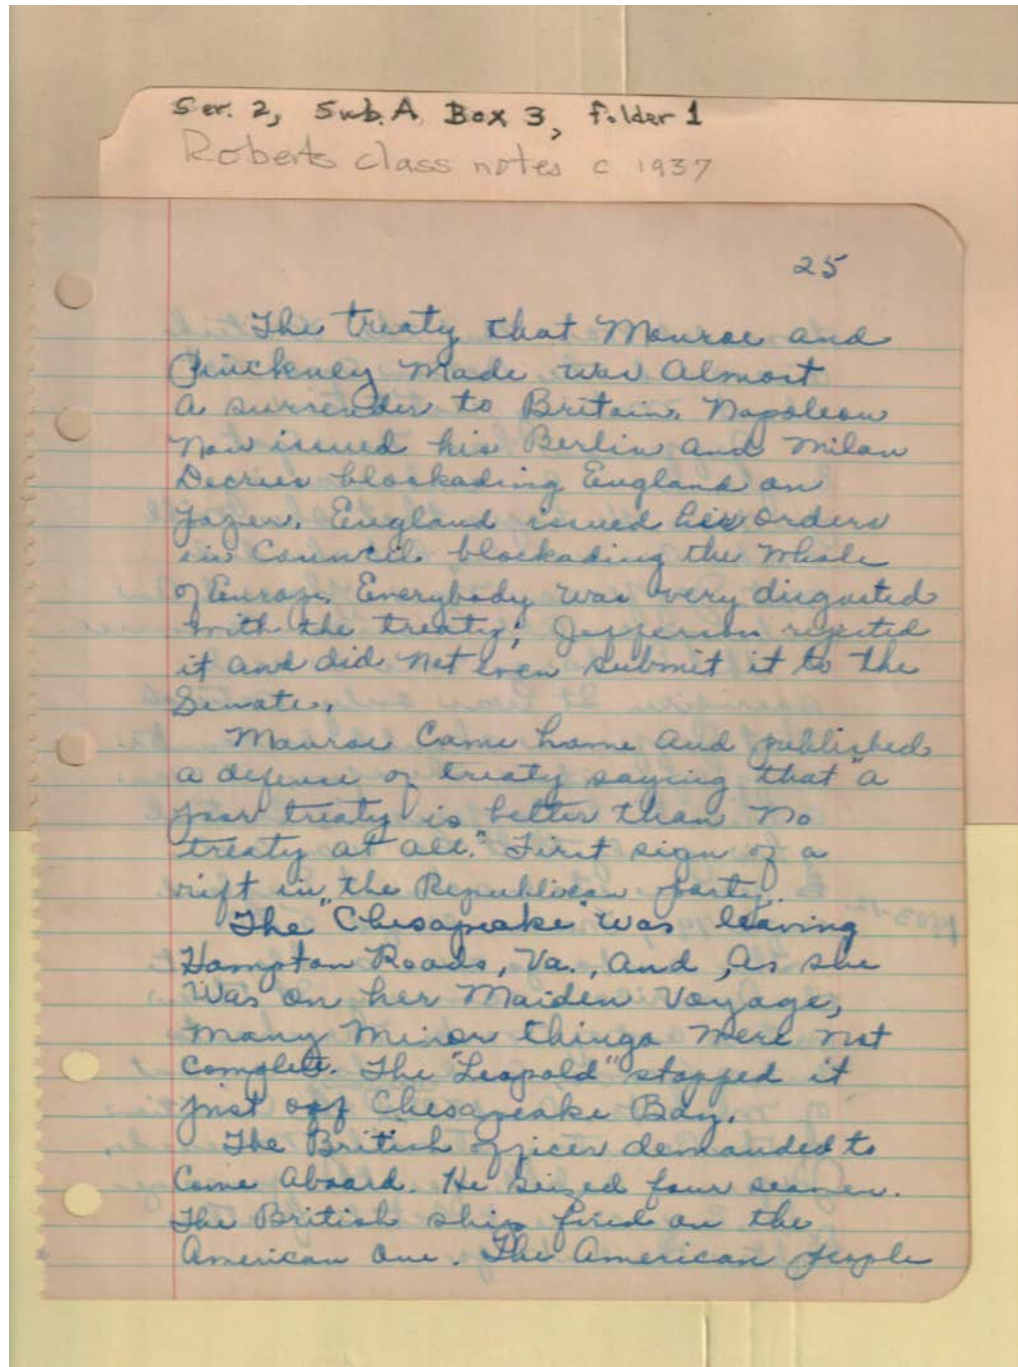 Ser. 2, Sub. A, Box 3, folder 1
Roberts class notes c 1937
25
The treaty that Monroe and
Pinckney Made was Almost
A surrender to Britain. Napoleon
Now issued his Berlin and Milan
Decrees blockading England on
paper. England issued her Orders
in Council blockading the Whole
of Europe. Everybody was very disgusted
with the treaty; Jefferson rejected
it and did not even submit it to the
Senate.
Monroe Came home and published
a defense of treaty saying that "a
poor treaty is better than no
treaty at all." First sign of a
rift in the Republican party.
The "Chesapeake" was leaving
Hampton Roads, Va., and, as she
Was on her Maiden Voyage,
many Minor things were not
Complete. The "Leopold" stopped it
just off Chesapeake Bay.
The British officer demanded to
Come Aboard. He seized four seamen.
The British ship fired on the
American One. The American people